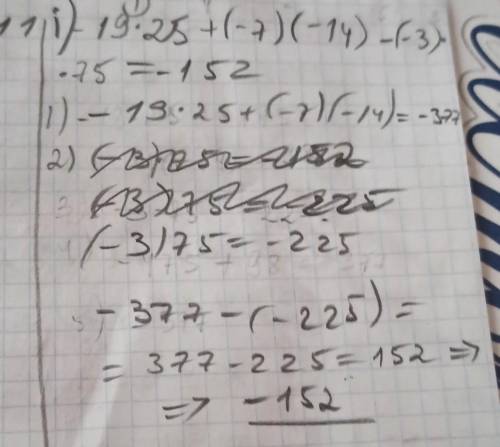 11, i) -19·25+(-7)(-14)-(-3)·
·75=-152
1) -19·25+(-7)(-14)=-377
2)
(-3)75=-225
-377-(-225)=
=377-225=152 =>
=> -152